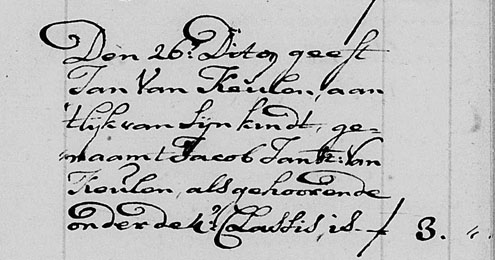 Den 26: Dito geeft
Jan Van Keulen, aan
't lijk van sijn kindt, ge-
naamt Jacob Jansz: Van
Keulen, als gehoorende
onder de 4:e Classis, is - ƒ 3. "